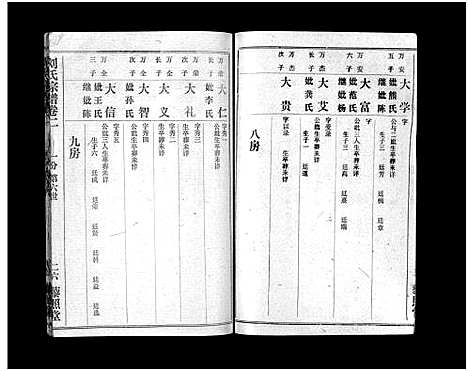 万安
五子
大学
妣熊氏
继妣陈
字
公与二妣生卒葬未详
生子三 廷芳 廷槐 廷章
万安
六子
大富
妣范氏
继妣杨
公妣三人生卒葬未详
生子三 廷 廷嘉 廷瑞
万杰
长子
大艾
妣龚氏
字
公妣生卒葬未详
生子一 廷选
万杰
次子
大贵
字以录
生卒葬未详
八房
万全
长子
大仁
妣李氏
字秀一
公妣生卒葬未详
万全
次子
大礼
字秀二
生卒葬未详
万全
三子
大义
妣孙氏
字秀三
大智
字秀四
生卒葬未详
大信
妣王氏
继妣陈
字秀五
公妣三人生卒葬未详
生子六 廷成 廷 廷 廷朝 廷益 廷选
九房
刘氏宗谱卷二
第六世
二六 藜照堂